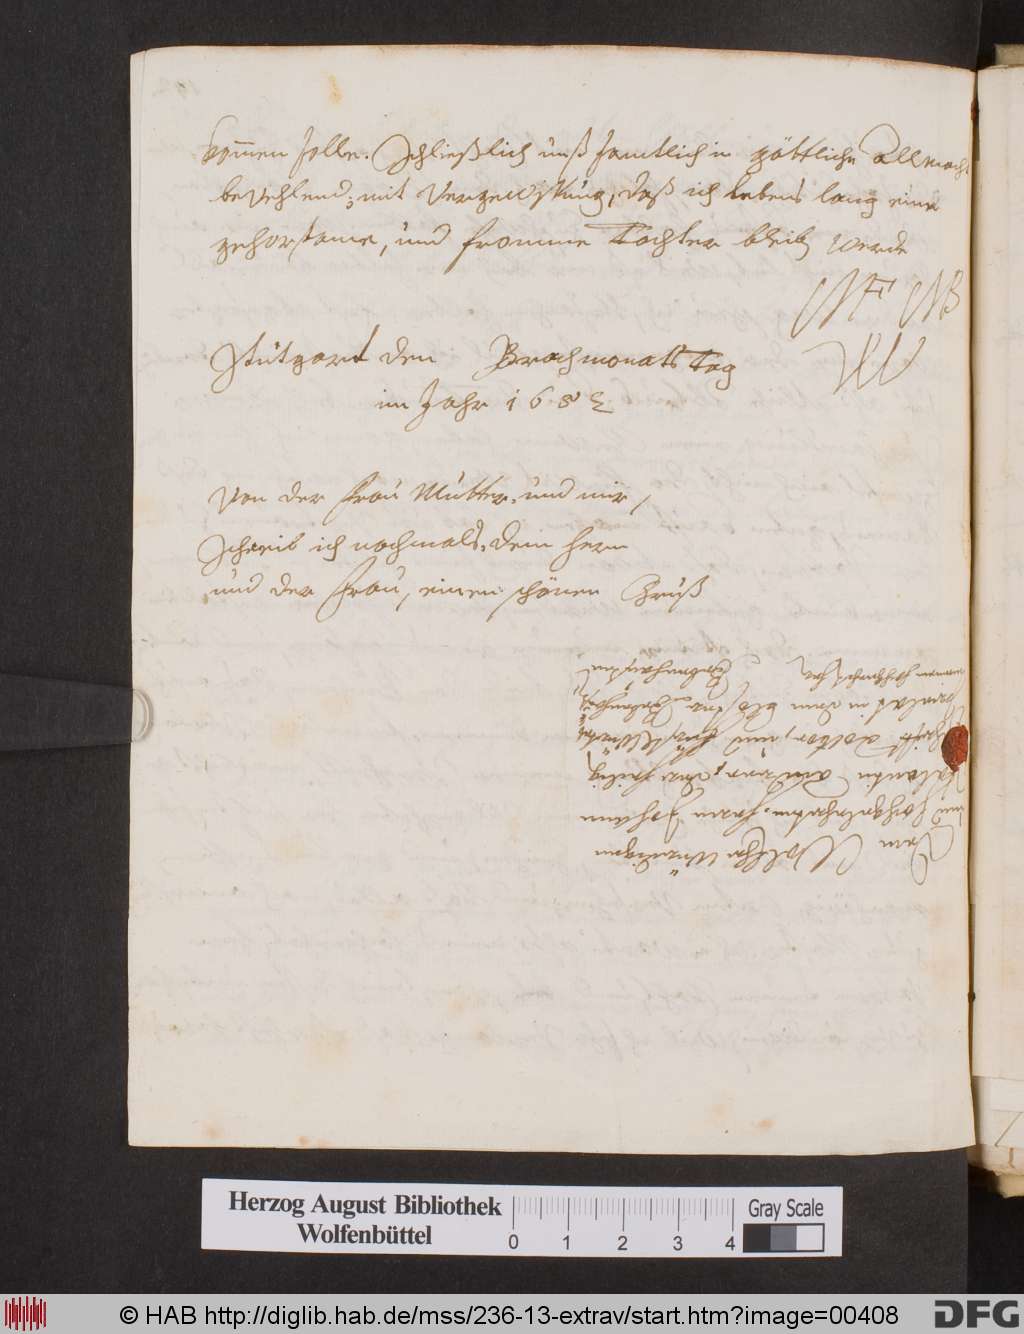 kommen solle. Schließlich unß samtlich in göttliche Allmacht
bevehlend, mit Vergewißung, daß ich lebens lang eine
gehorsame, und fromme Tochter bleib werde
MF MB
W
Stutgard den Brachmonats Tag
im Jahr 1652
Von der Frau Mutter, und mir,
schreib ich nochmals, dem herrn
und der Frau, einen schönen Gruß
Dem WolEhrwürdigen
und hochgelehrten, herrn Johann
Valentin Andreae, der heilig
schrifft Doctor, und
Prælat in dem
meinem
Herzog August Bibliothek
Wolfenbüttel
0 1 2 3 4
Gray Scale
© HAB http://diglib.hab.de/mss/236-13-extrav/start.htm?image=00408
DFG